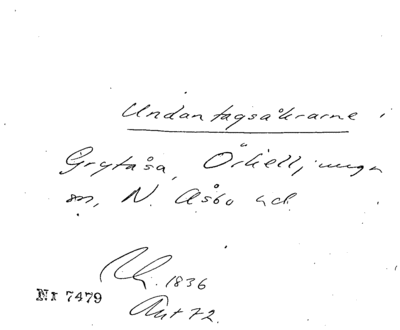 Undantagsåkrarne i
Grytåsa, Örkelljunga
sn, N. Åsbo hd.
1836
Nr 7479
Ant 72.